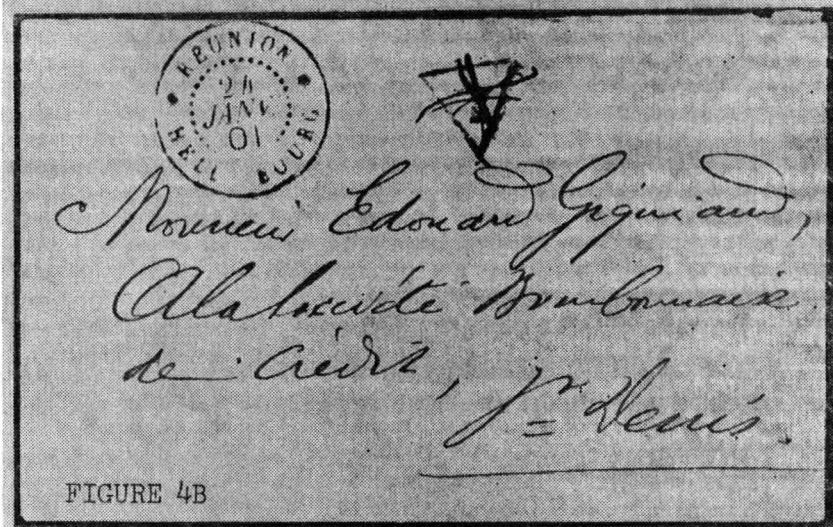 RÉUNION
24
JANV.
01
HELL BOURG
Monsieur Edouard
A la Société Bourbonnaise
de Crédit,
St= Denis.
FIGURE 4B